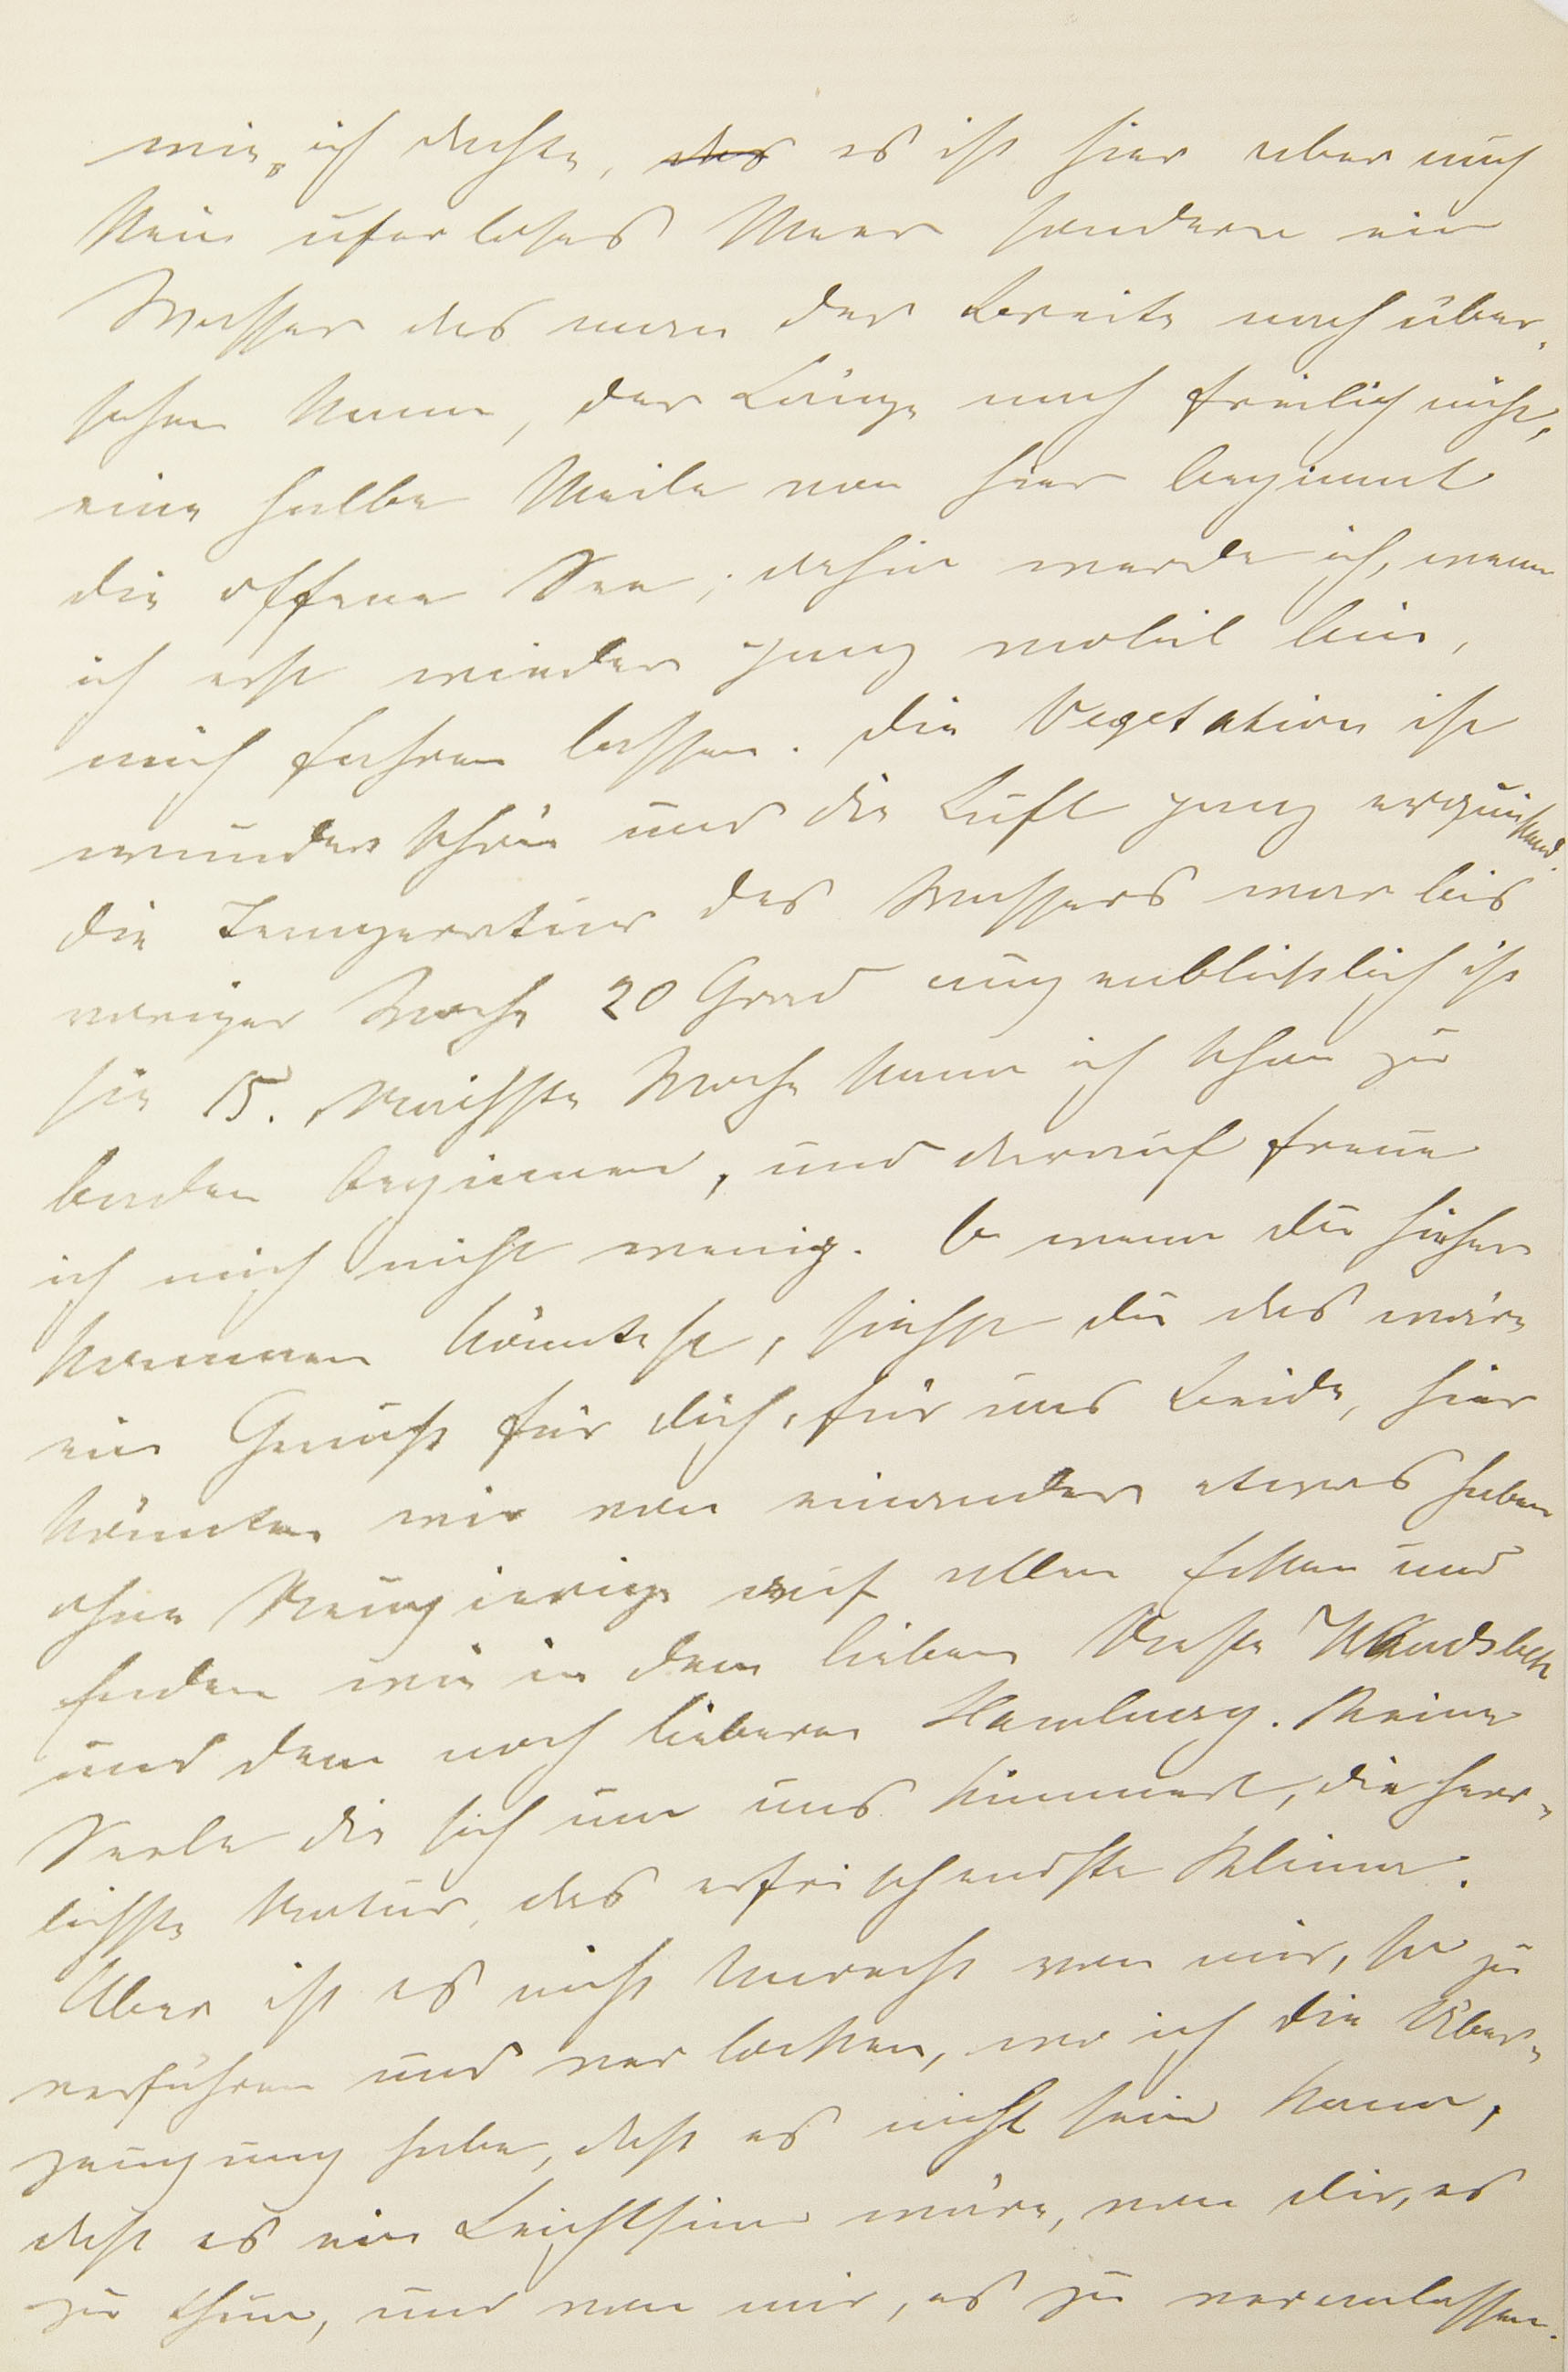 wie ich dachte, das es ist hier aber auch
kein uferloses Meer sondern ein
Wasser das man der Breite nach über-
sehen kann, der Länge nach freilich nicht,
eine halbe Meile von hier beginnt
die offene See; dahin werde ich, wenn
ich erst wieder ganz mobil bin,
mich fahren lassen. Die Vegetation ist
wunderschön und die Luft ganz erquickend.
die Temperatur des Wassers war bis
voriger Woche 20 Grad augenblicklich ist
sie 15. Nächste Woche kann ich schon zu
baden beginnen, und darauf freue
ich mich nicht wenig. O wenn du hieher
kommen könntest, siehst du das wäre
ein Genuß für dich, für uns Beide, hier
könnten wir von einander etwas haben
ohne Neugierige auf allen Ecken und
Enden wie in dem lieben Wandsbek
und dem noch lieberen Hamburg. Keine
Seele die sich um uns kümmert, die herr-
lichste Natur, das erfrischendste Klima.
Aber ist es nicht Unrecht von mir, so zu
verführen und verlocken, wo ich die Über-
zeugung habe, daß es nicht sein kann,
daß es ein Leichtsinn wäre, von dir, es
zu thun, und von mir, es zu veranlassen.